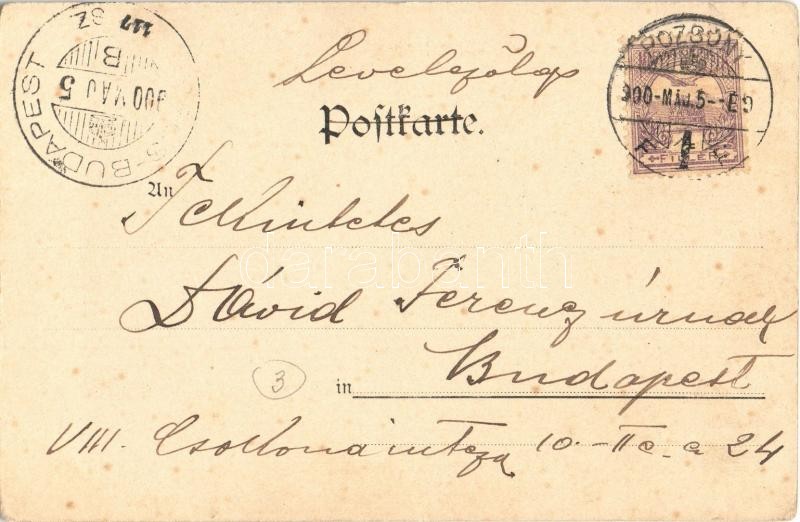 Levelezőlap
Postkarte.
An Tekintetes
Dávid Ferencz úrnak
in Budapest
VIII. Csokonai utcza 10.-II e. a 24
3
BUDAPEST
900 MAJ 5
B
117 SZ
POZSONY
900-MÁJ.5--E9
FILLÉR
darabanth